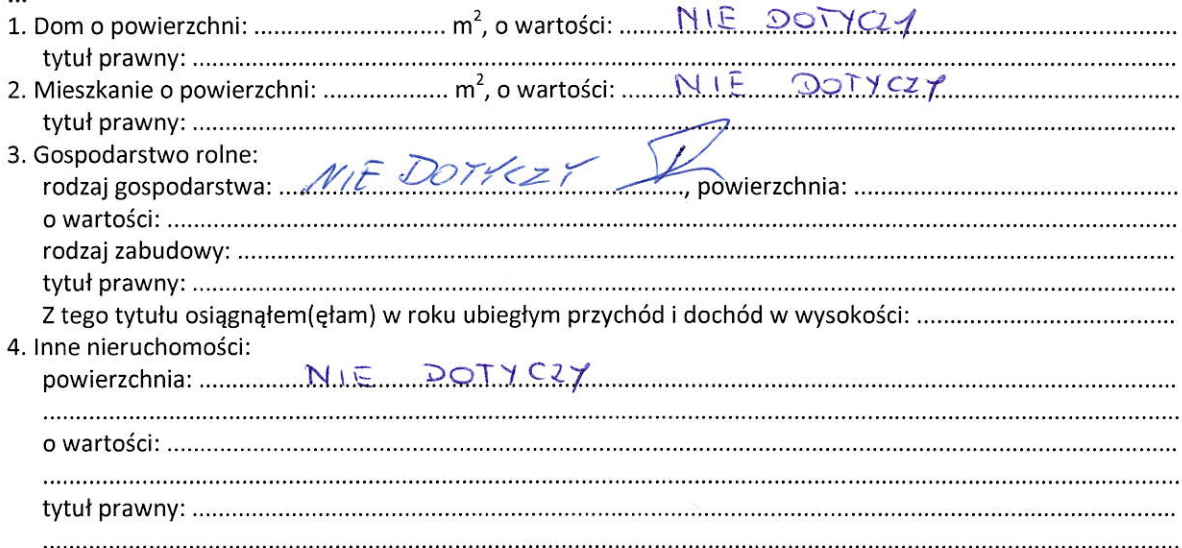 ...
1. Dom o powierzchni: .............................. m², o wartości: ........ NIE DOTYCZY
tytuł prawny: ..............................
2. Mieszkanie o powierzchni: .................... m², o wartości: ........ NIE DOTYCZY
tytuł prawny: ..............................
3. Gospodarstwo rolne:
rodzaj gospodarstwa: .... NIE DOTYCZY ...................., powierzchnia: ..............................
o wartości: ..............................
rodzaj zabudowy: ..............................
tytuł prawny: ..............................
Z tego tytułu osiągnąłem(ęłam) w roku ubiegłym przychód i dochód w wysokości: ..............................
4. Inne nieruchomości:
powierzchnia: ................ NIE DOTYCZY ..............................
..............................
o wartości: ..............................
..............................
tytuł prawny: ..............................
..............................